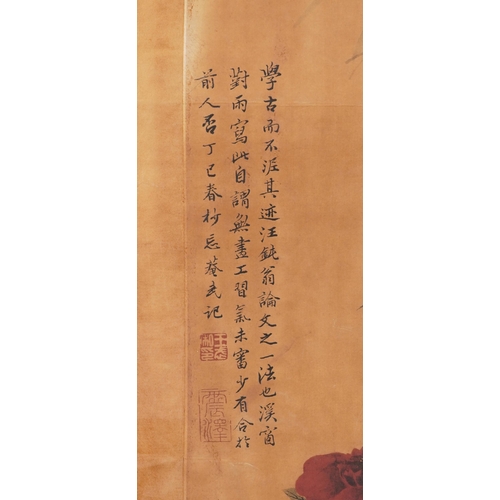 學古而不泥其迹汪鈍翁論文之一法也溪窗
對雨寫此自謂無畫工習氣未審少有合於
前人否丁巳春杪忘菴武記
震澤